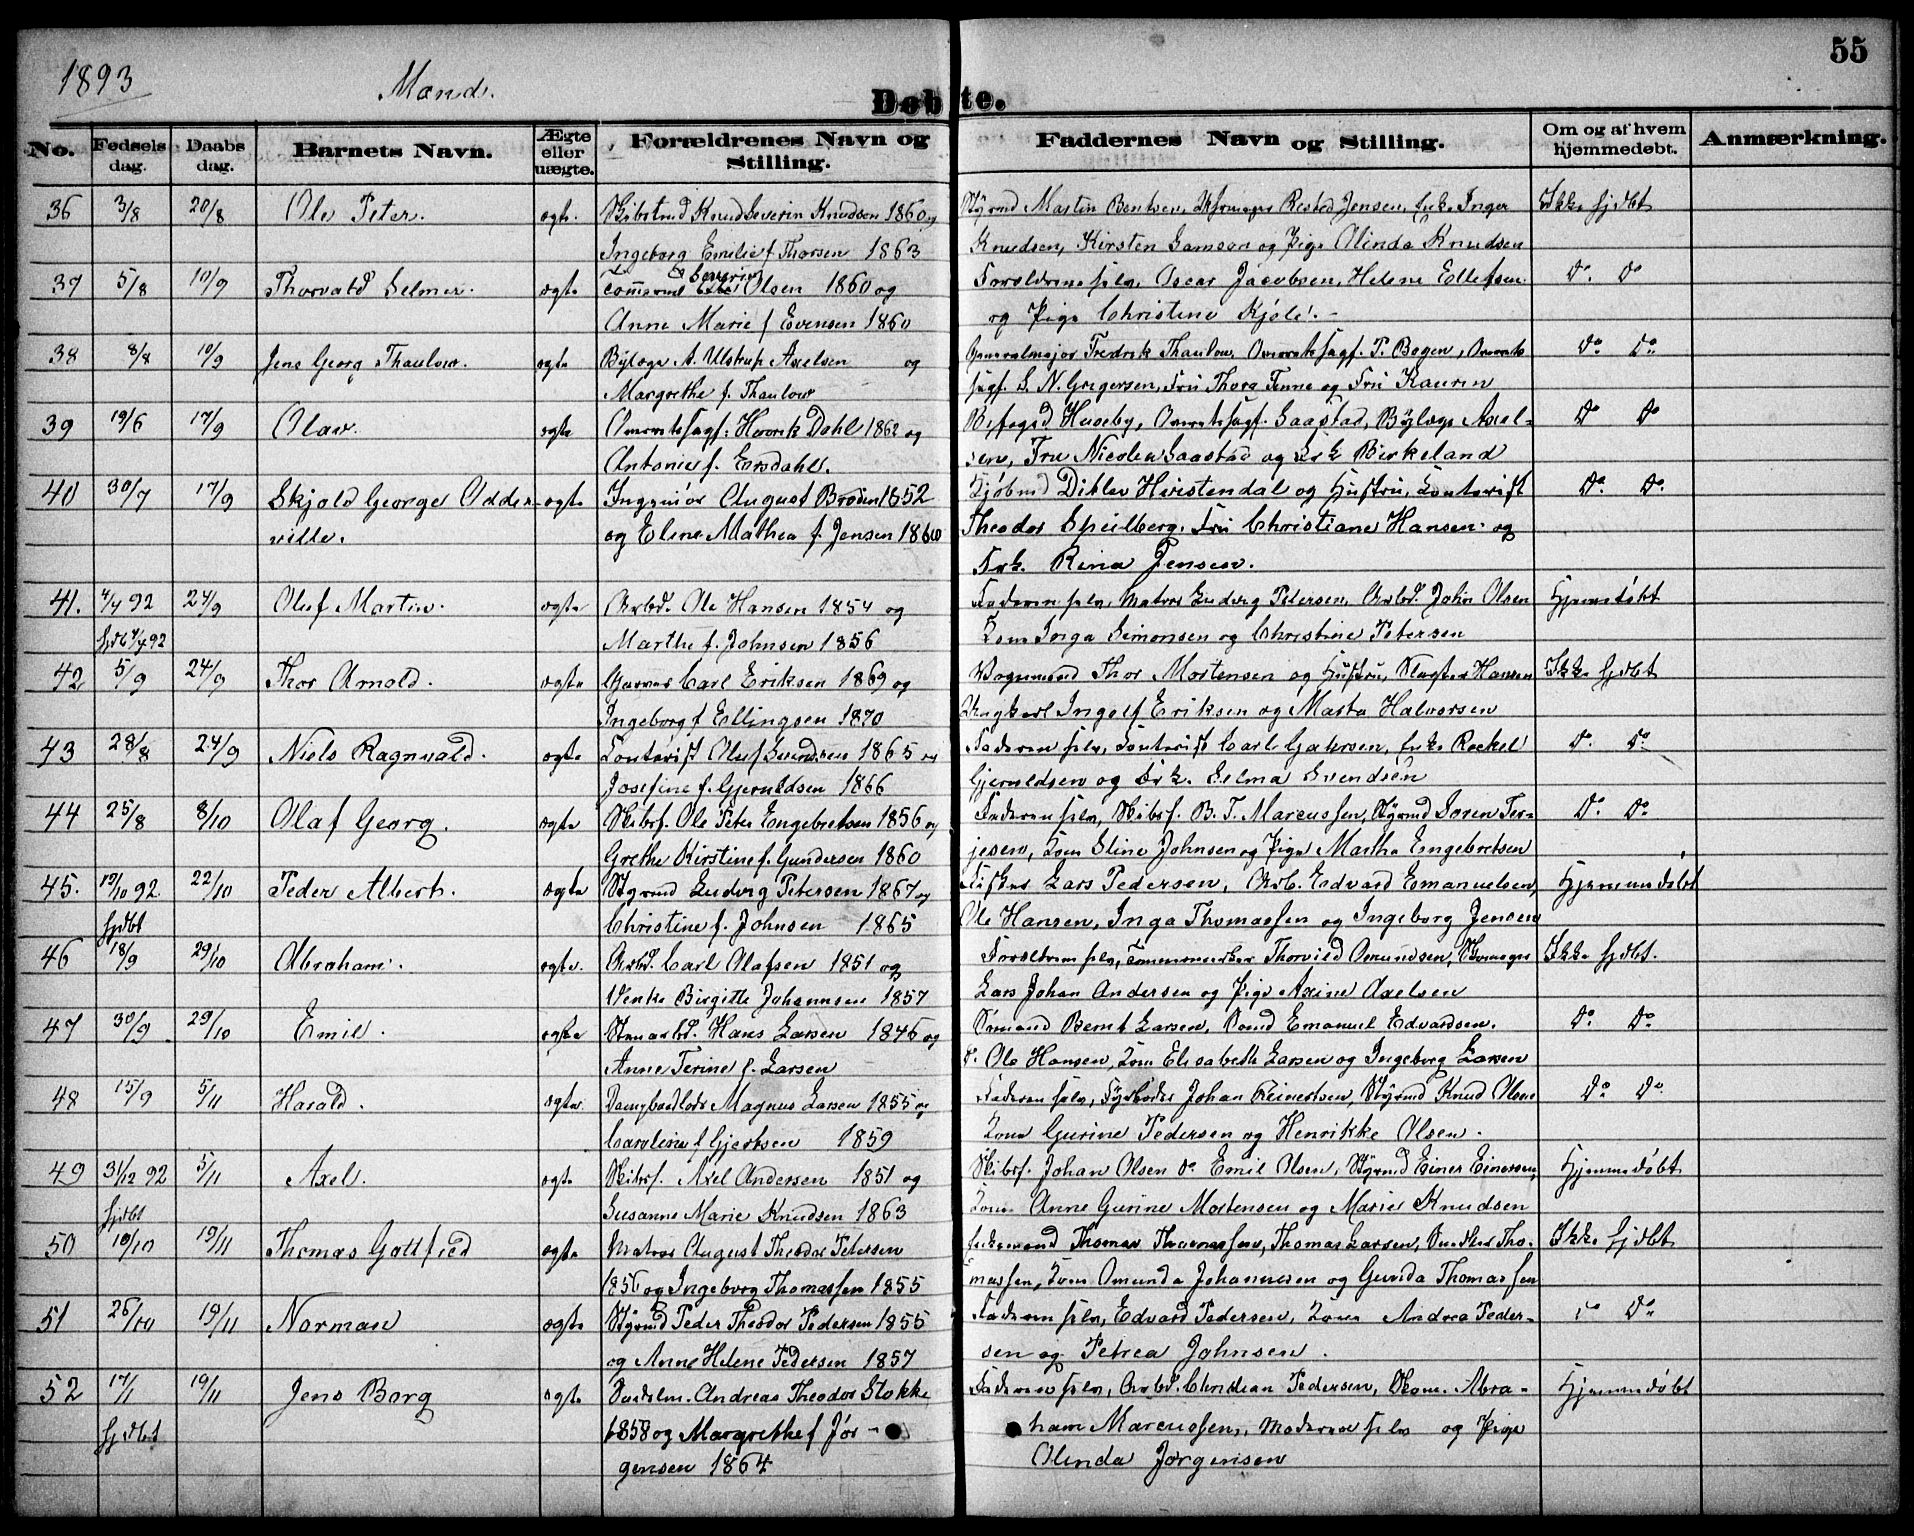 55
1893 Mand.
Døbte.
No. Fødsels dag. Daabs dag. Barnets Navn. Ægte eller uægte. Forældrenes Navn og Stilling. Faddernes Navn og Stilling. Om og af hvem hjemmedøbt. Anmærkning.
36 3/8 20/8 Ole Peter. ægte. Knud Severin Knudsen 1860 og Styrmd Martin Bentsen, Jensen, Enke Inger Ikke hjdbt
Ingeborg Emilie f. Thorsen 1863 Knudsen, Kirsten Samson og Pige Olinda Knudsen
37 5/8 10/9 Thorvald Selmer. ægte Tømermd Severin Olsen 1860 og Forældrene selv, Oscar Jacobsen, Helene Ellefsen Do Do
Anne Marie f Evensen 1860 og Pige Christine Kjele.
38 8/8 10/9 Jens Georg Thaulow. ægte Bylæge A. Ulstrup Axelsen og Generalmajor Fredrik Thaulow, Overretssagf. P. Bogen, Overrets Do Do
Margrethe f. Thaulow sagf. S. N. Gregersen, Fru Thora Finne og Fru Kaurin
39 19/6 17/9 Olav. ægte Overretssagf. Henrik Dahl 1862 og Byfoged Huseby, Overretssagf. Saastad, Bylæge Axel- Do Do
Antonie f. Ersdahl. sen, Fru Nicolea Saastad og Frk Birkeland
40 30/7 17/9 Skjold George Odder- ægte Ingeniør August Brodin 1852 Kjøbmd Ditlev Hiristendal og Hustru, Kontorist Do Do
ville. og Eline Mathea f. Jensen 1860 Theodor Speilberg, Fru Christiane Hansen og
Frk. Rina Jensen.
41. 4/4 92 24/9 Oluf Martin. ægte Arbd. Ole Hansen 1854 og Faderen selv, Matros Ludvig Petersen, Arbd. John Olsen Hjemmedøbt
hjdbt 4/4 92 Marthe f. Johnsen 1856 Kone Inga Simonsen og Christine Petersen
42 5/9 24/9 Thor Arnold. ægte Garver Carl Eriksen 1869 og Vognmand Thor Mortensen og Hustru, Slagter Hansen Ikke hjdbt
Ingeborg f Ellingsen 1870 Ungkarl Ingolf Eriksen og Marta Halvorsen
43 28/8 24/9 Niels Ragnvald. ægte Kontorist Oluf Svendsen 1865 og Faderen selv, Kontorist Carl Gahrsen, Enke Rackel Do Do
Josefine f. Gjeruldsen 1866 Gjeruldsen og Frk. Selma Svendsen
44 25/8 8/10 Olaf Georg. ægte Skibsf. Ole Peter Engebretsen 1856 og Faderen selv, Skibsf. B. T. Marcussen, Styrmd Søren Ter- Do Do
Grethe Kirstine f. Gundersen 1860 jesen, Kone Stine Johnsen og Pige Martha Engebretsen
45. 19/10 92 22/10 Peder Albert. ægte Styrmd Ludvig Petersen 1867 og Fisker Lars Pedersen, Arb. Edvard Emanuelsen, Hjemmedøbt
hjdbt Christine f. Johnsen 1865 Ole Hansen, Inga Thomassen og Ingeborg Jensen
46 18/9 29/10 Abraham. ægte. Arbd. Carl Olafsen 1851 og Forældrene selv, Tømmermester Thorvild Omundsen, Ikke hjdbt.
Venke Birgitte Johannsen 1857 Lars Johan Andersen og Pige Axine Axelsen
47 30/9 29/10 Emil. ægte Hans Larsen 1846 og Sømand Bernt Larsen, Sømd Emanuel Edvardsen. Do Do
Anne Terine f. Larsen Do Ole Hansen, Kone Elisabeth Larsen og Ingeborg Larsen
48 15/9 5/11 Harald. ægte Magnus Larsen 1855 og Faderen selv, Fyrbøder Johan Reinertsen, Styrmd Knud Olsen Do Do
Caroline f Gjertsen 1859 Kone Gurine Pedersen og Henrikke Olsen.
49 31/12 92 5/11 Axel. ægte Skibsf. Axel Andersen 1851 og Skibsf. Johan Olsen Do Emil Olsen, Styrmd Einer Einersen, Hjemmedøbt
hjdbt Susanne Marie Knudsen 1863 Kone Anne Gurine Mortensen og Marie Knudsen
50 10/10 19/11 Thomas Gottfred ægte Matros August Theodor Petersen Enkemand Thomas Thomassen, Thomas Larsen, Tho- Ikke hjdbt
1856 og Ingeborg Thomassen 1855 massen, Kone Omunda Johannesen og Gunda Thomassen
51 26/10 19/11 Norman ægte Styrmd Peder Theodor Pedersen 1855 Faderen selv, Edvard Pedersen, Kone Andrea Peder- Do Do
og Anne Helene Pedersen 1857 sen og Petrea Johnsen.
52 17/1 19/11 Jens Borg ægte Andreas Theodor Stokke Faderen selv, Arbd. Christian Pedersen, Abra- Hjemmedøbt
hjdbt 1858 og Margrethe f Jør- ham Marcussen, Moderen selv og Pige
gensen 1864 Olinda Jørgensen